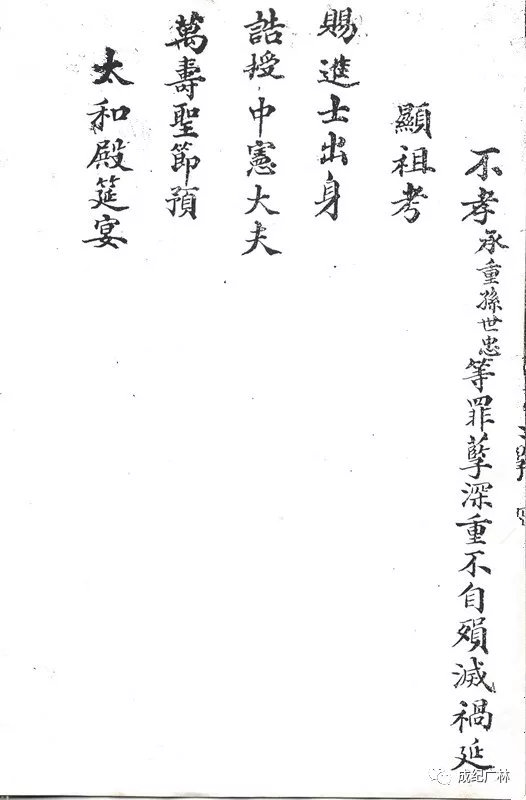 不孝承重孫世忠等罪孽深重不自殞滅禍延
顯祖考
賜進士出身
誥授中憲大夫
萬壽聖節預
太和殿筵宴
成纪广林